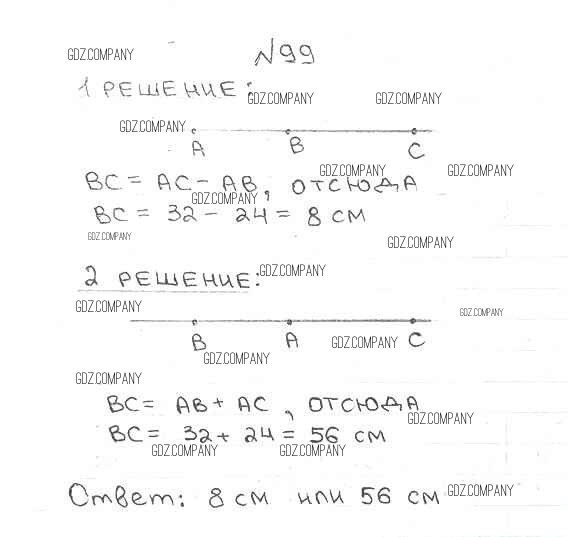 GDZ.COMPANY
№99
1 РЕШЕНИЕ:
GDZ.COMPANY GDZ.COMPANY
GDZ.COMPANY
A B C
GDZ.COMPANY GDZ.COMPANY
BC = AC - AB, ОТСЮДА
GDZ.COMPANY
BC = 32 - 24 = 8 СМ
GDZ.COMPANY GDZ.COMPANY
2 РЕШЕНИЕ:
GDZ.COMPANY
GDZ.COMPANY GDZ.COMPANY
B A C
GDZ.COMPANY
GDZ.COMPANY
GDZ.COMPANY
BC = AB + AC, ОТСЮДА
GDZ.COMPANY
BC = 32 + 24 = 56 СМ
GDZ.COMPANY GDZ.COMPANY
Ответ: 8 см или 56 см
GDZ.COMPANY